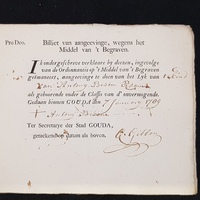 Pro Deo. Billiet van aangeevinge, wegens het
Middel van 't Begraven.
Ik ondergeschreve verklaare by deezen, ingevolge
van de Ordonnantie op 't Middel van 't Begraven
geëmaneert, aangeevinge te doen van het Lyk van
van Antony
als gehoorende onder de Classis van d' onvermogende.
Gedaan binnen GOUDA den 7 January 1789
Antony
Ter Secretarye der Stad GOUDA,
getekend datum als boven.